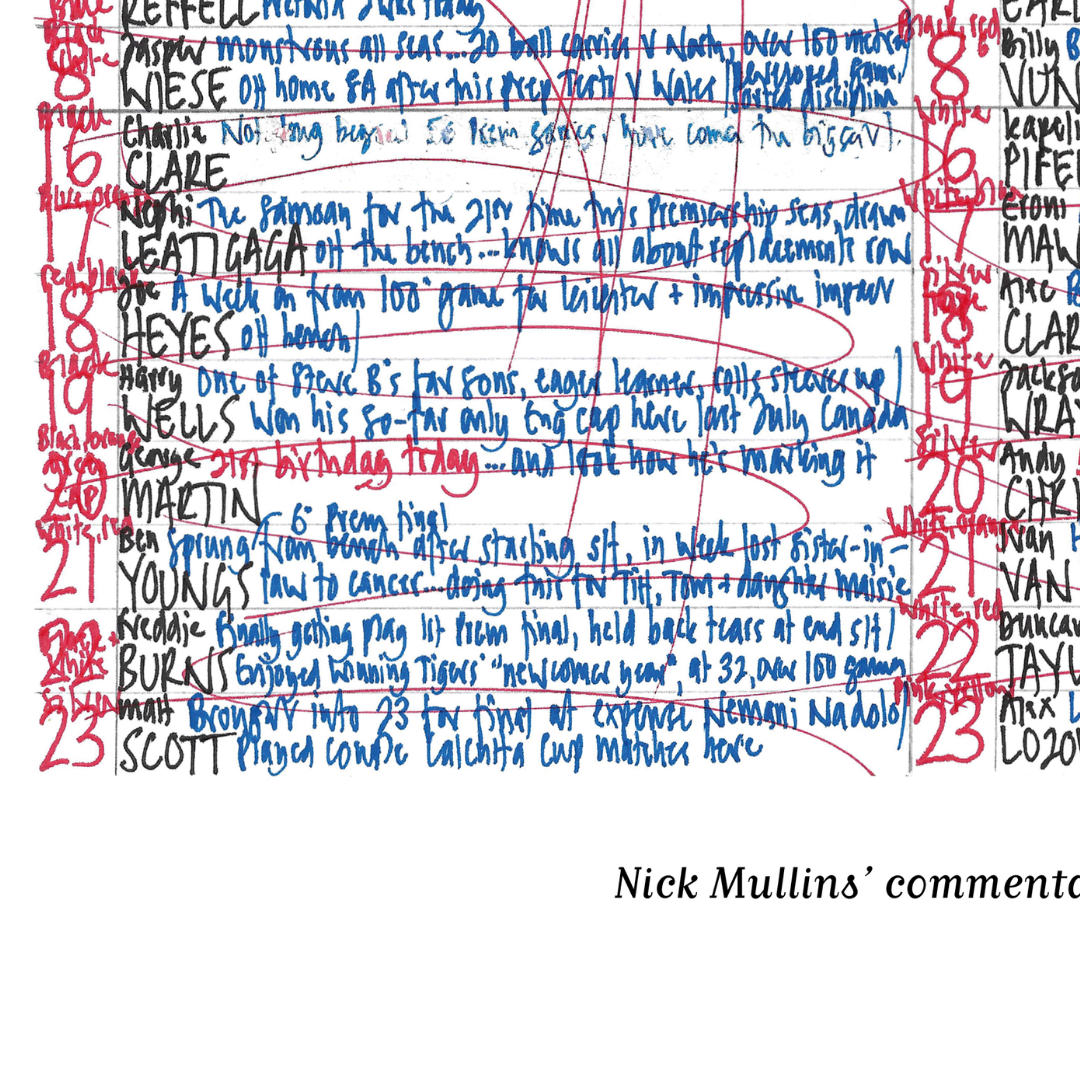 REFFELL
Black, red
8 Jasper monstrous all seas...20 ball carries v Nash, over 100 metres 8 Billy
WIESE off home SA after this prep Tests v Wales VUN
Black White
16 Charlie Not long begun 50 Prem games, have come the biggest 16 Kapeli
CLARE PIFE
Blue, White, blue
17 Nephi The Samoan for the 21st time this Premiership seas, drawn 17 Eroni
LEATIGAGA off the bench...knows all about replacements row MAW
red, black Silver
18 Joe A week on from 100th game for Leicester + impressive impact 18 Alec
HEYES off bench CLAR
Black White
19 Harry One of Steve B's fav sons, eager learner, rolls sleeves up 19 Jackso
WELLS Won his so-far only Eng cap here last July Canada WRA
Black, orange Silver
20 George 21st birthday today...and look how he's marking it 20 Andy
MARTIN CHRI
White, red 6th Prem final White, orange
21 Ben Sprung from bench after starting s/f, in week lost sister-in- 21 Ivan
YOUNGS law to cancer...doing this for Tiff, Tom + daughter Maisie VAN
White, red
22 Freddie Finally getting play 1st Prem final, held back tears at end s/f 22 Duncan
BURNS Enjoyed winning Tigers' "newcomer year", at 32, over 100 games TAYL
Silver
23 Matt Brought into 23 for final at expense Nemani Nadolo 23 Alex
SCOTT Played couple Calcutta Cup matches here LOZO
Nick Mullins' commenta